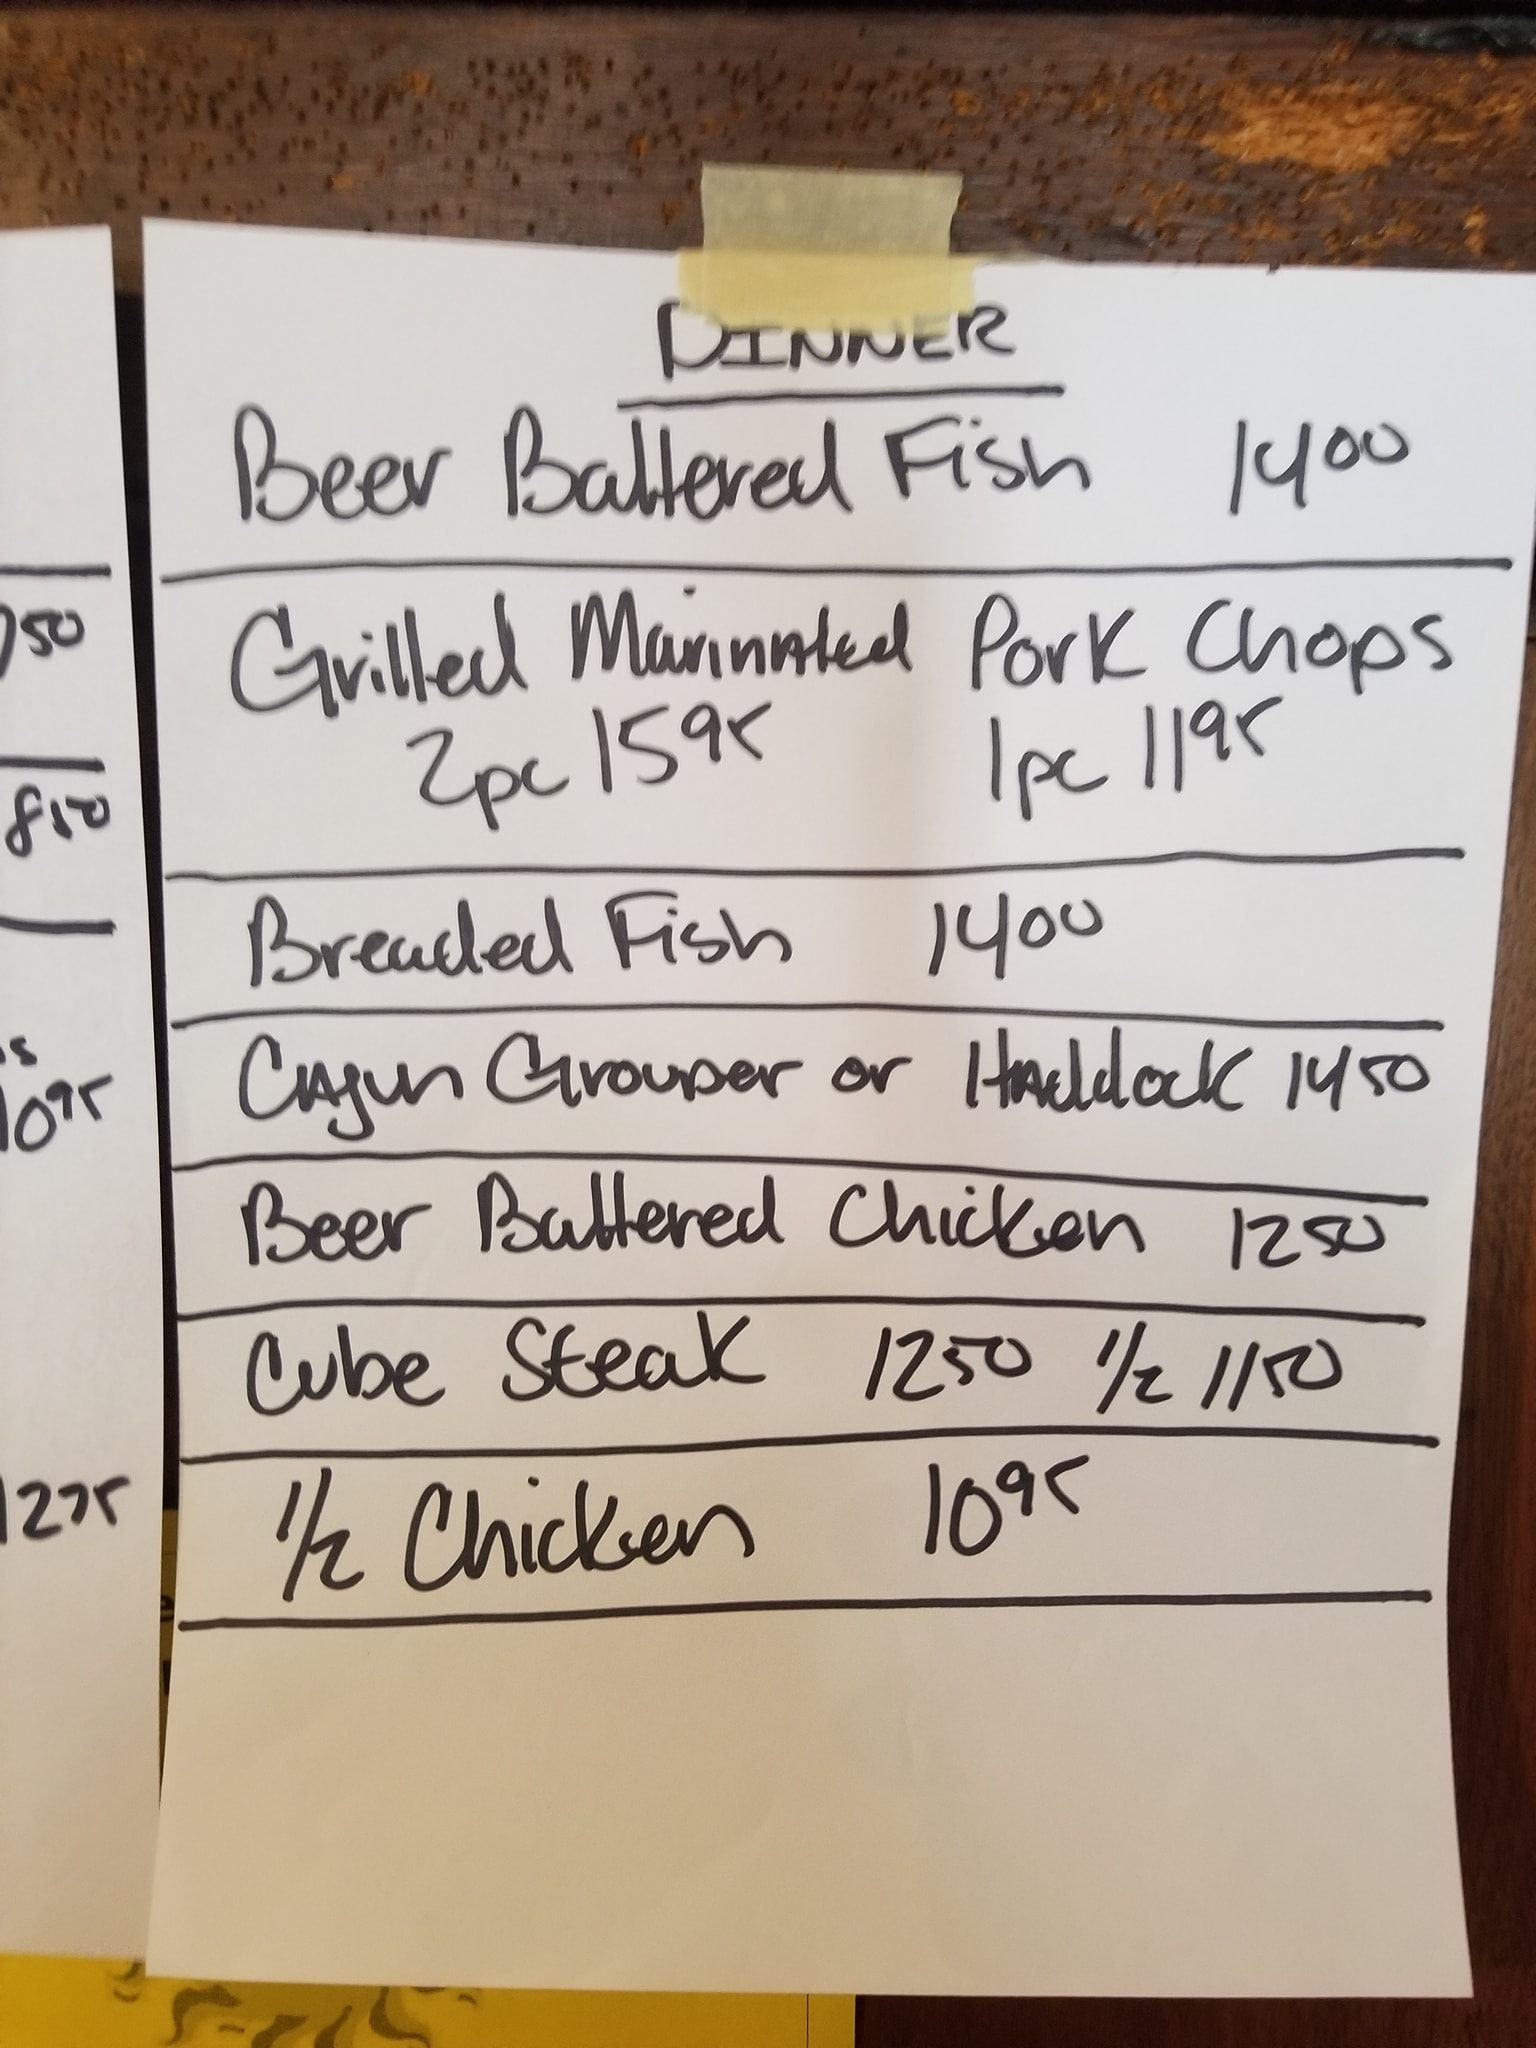 DINNER
Beer Battered Fish 1400
Grilled Marinated Pork Chops
2pc 1595 1pc 1195
Breaded Fish 1400
Cajun Grouper or Haddock 1450
Beer Battered Chicken 1250
Cube Steak 1250 1/2 1150
1/2 Chicken 1095
50
850
s
1095
1275